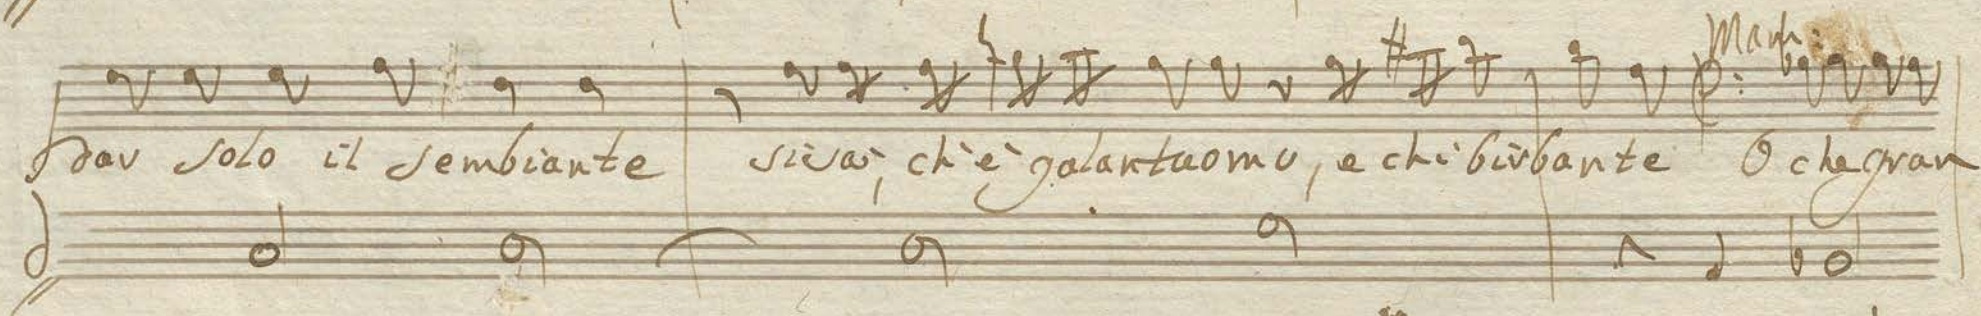 Mam:
dav solo il sembiante si sa, ch'è galantuomo, e chi birbante O che gran